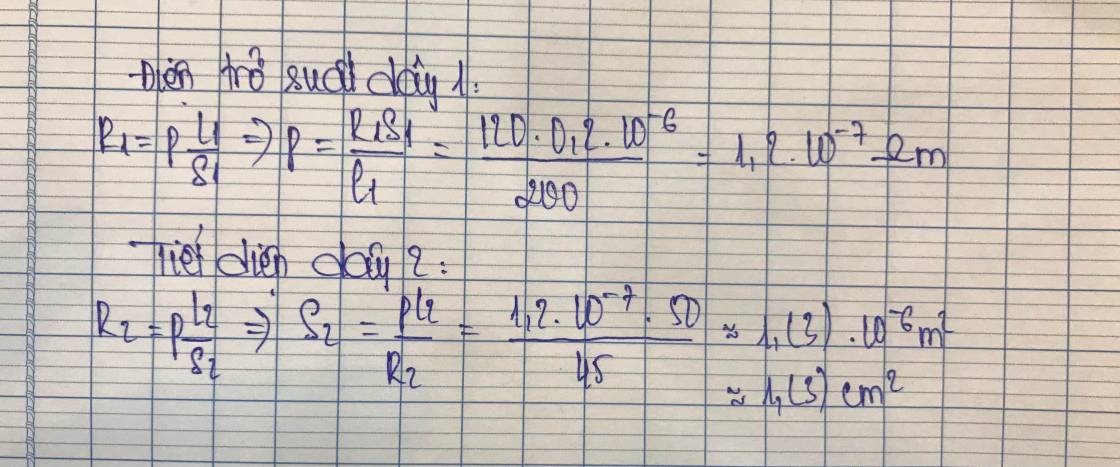 Điện trở suất dây 1:
R₁ = ρ l₁/S₁ ⇒ ρ = R₁S₁/l₁ = 120 . 0,2 . 10⁻⁶/200 = 1,2 . 10⁻⁷ Ωm
Tiết diện dây 2:
R₂ = ρ l₂/S₂ ⇒ S₂ = ρl₂/R₂ = 1,2 . 10⁻⁷ . 50/45 ≈ 1,(3) . 10⁻⁶ m²
≈ 1,(3) cm²